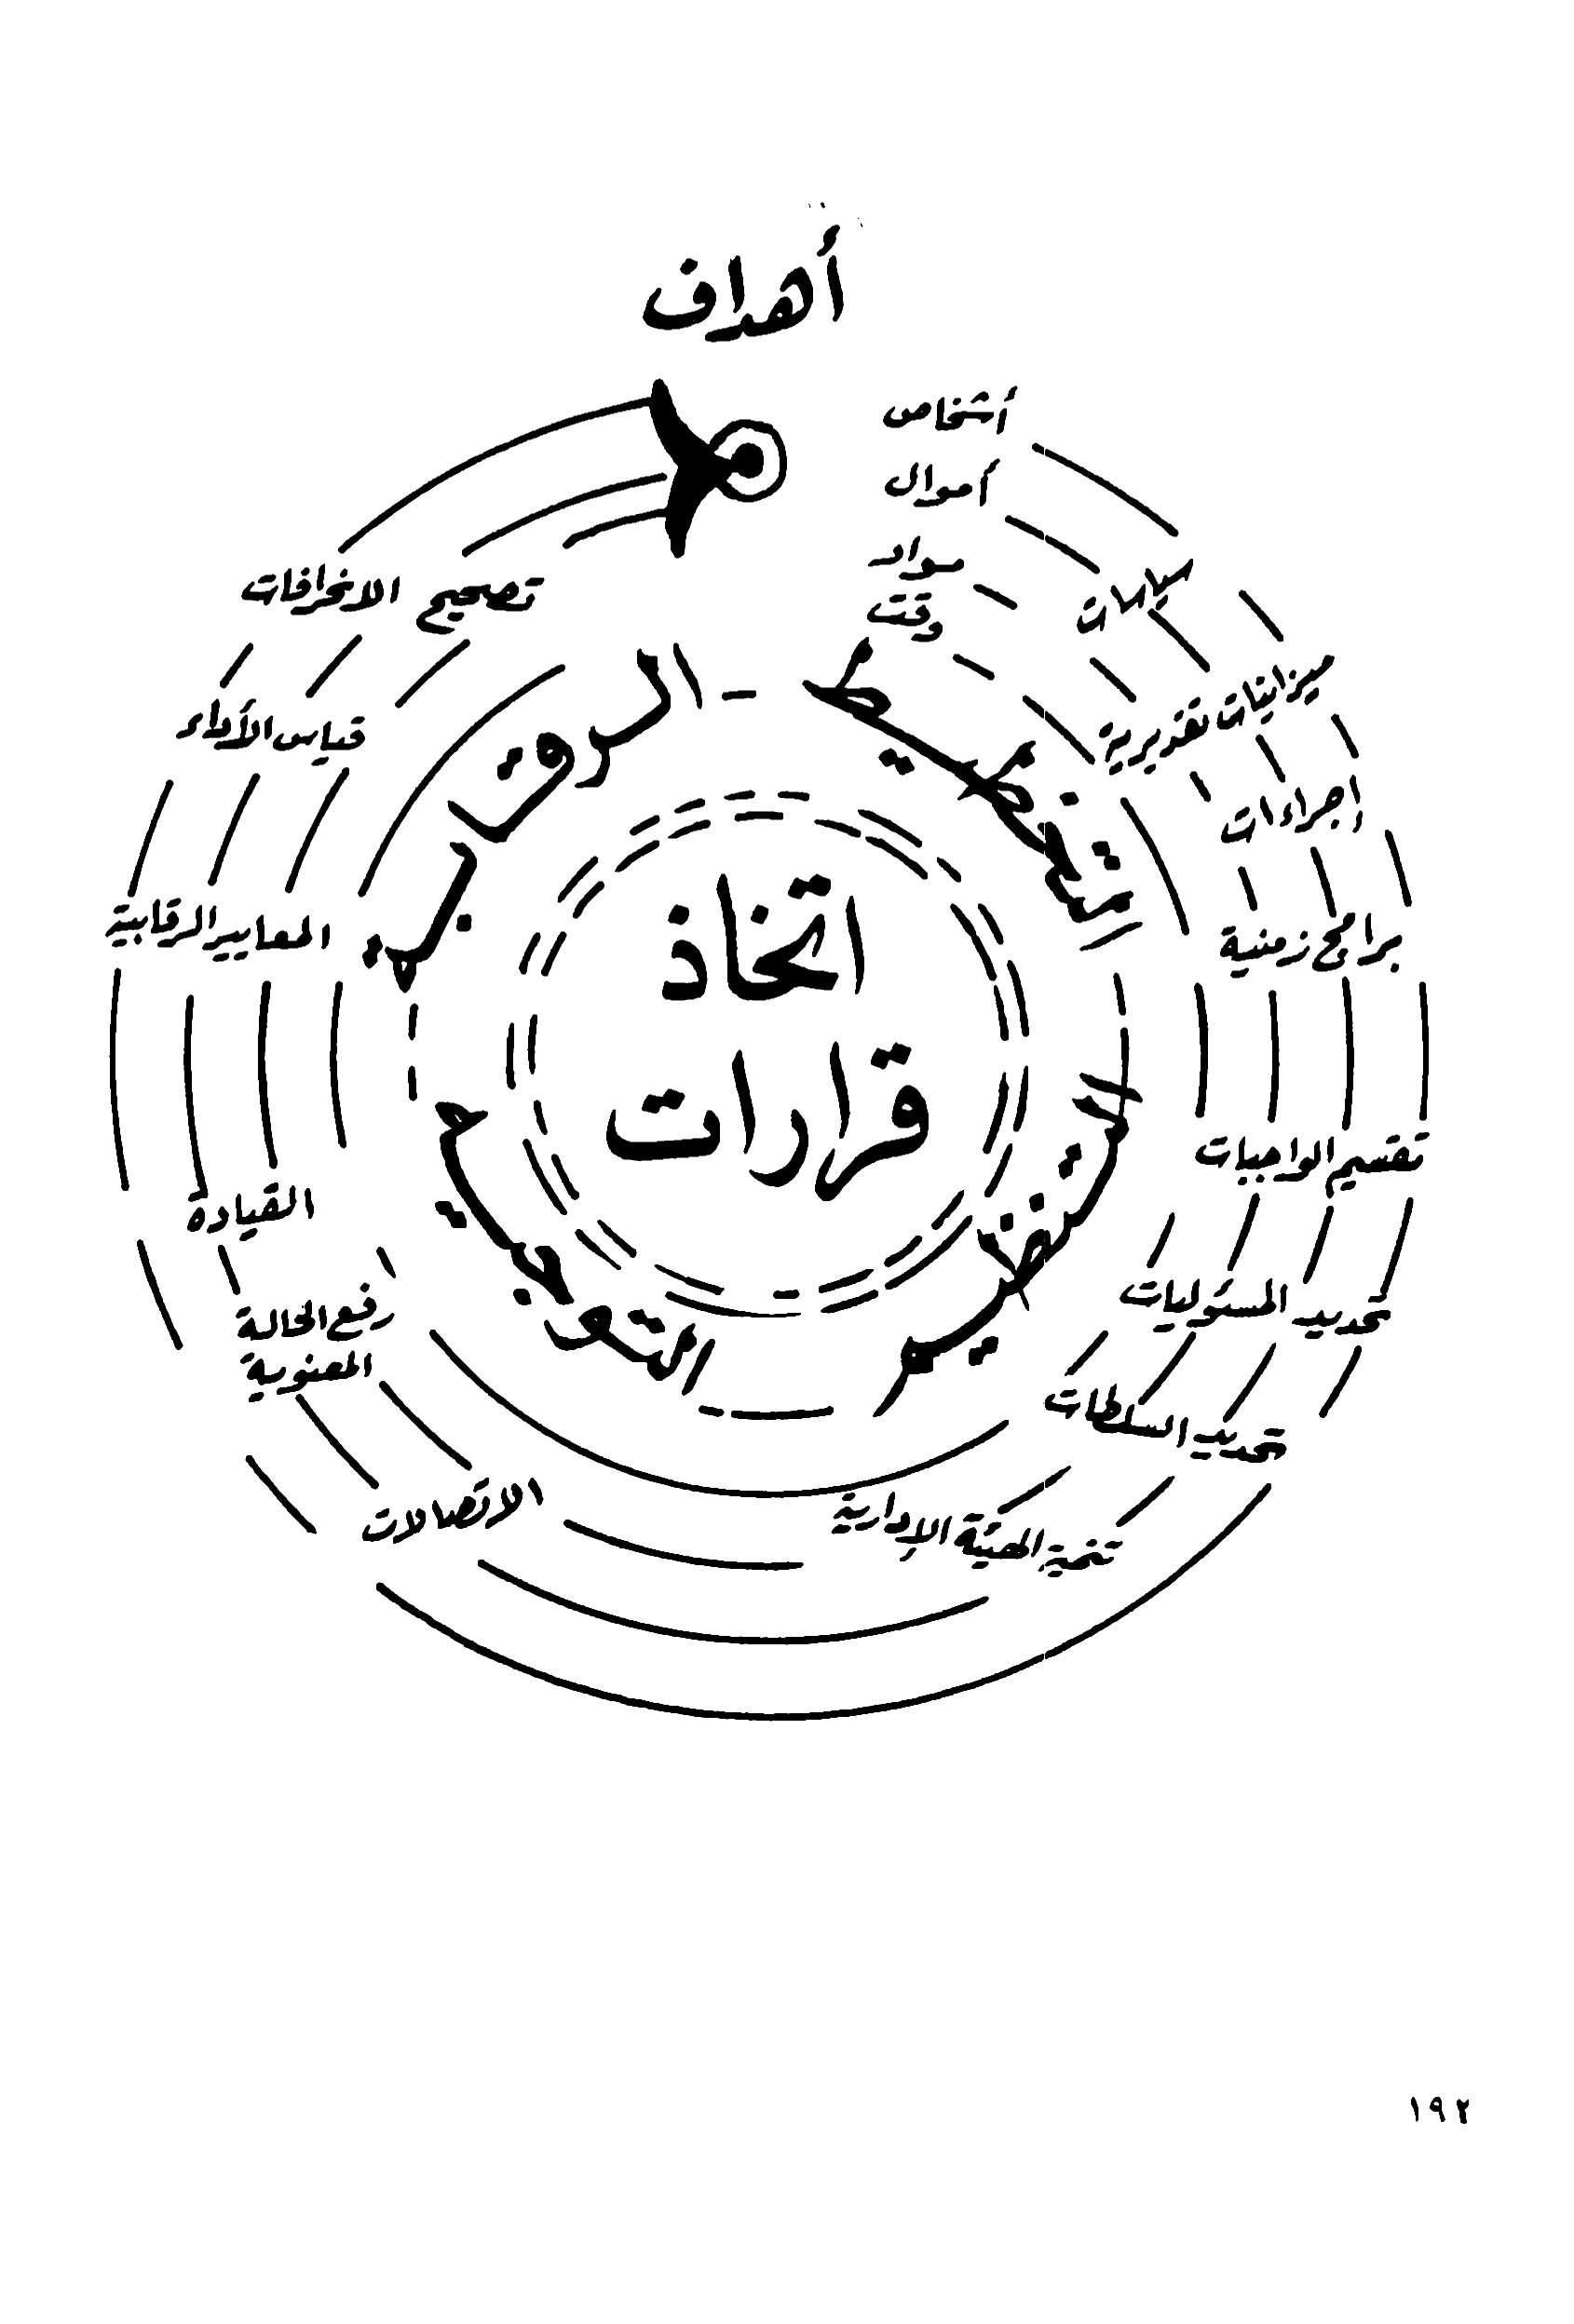 أهداف
أشخاص
أموال
مواد
وقت
ميزانيات تقديرية
اجراءات
برامج زمنية
تقسيم الواجبات
تحديد المسئوليات
تحديد السلطات
تنمية الهيئة الإدارية
الاتصالات
رفع الحالة
المعنوية
القيادة
المعايير الرقابية
قياس الأداء
تصحيح الانحرافات
التخطيط
التنظيم
التوجيه
الرقابة
اتخاذ
قرارات
١٩٢